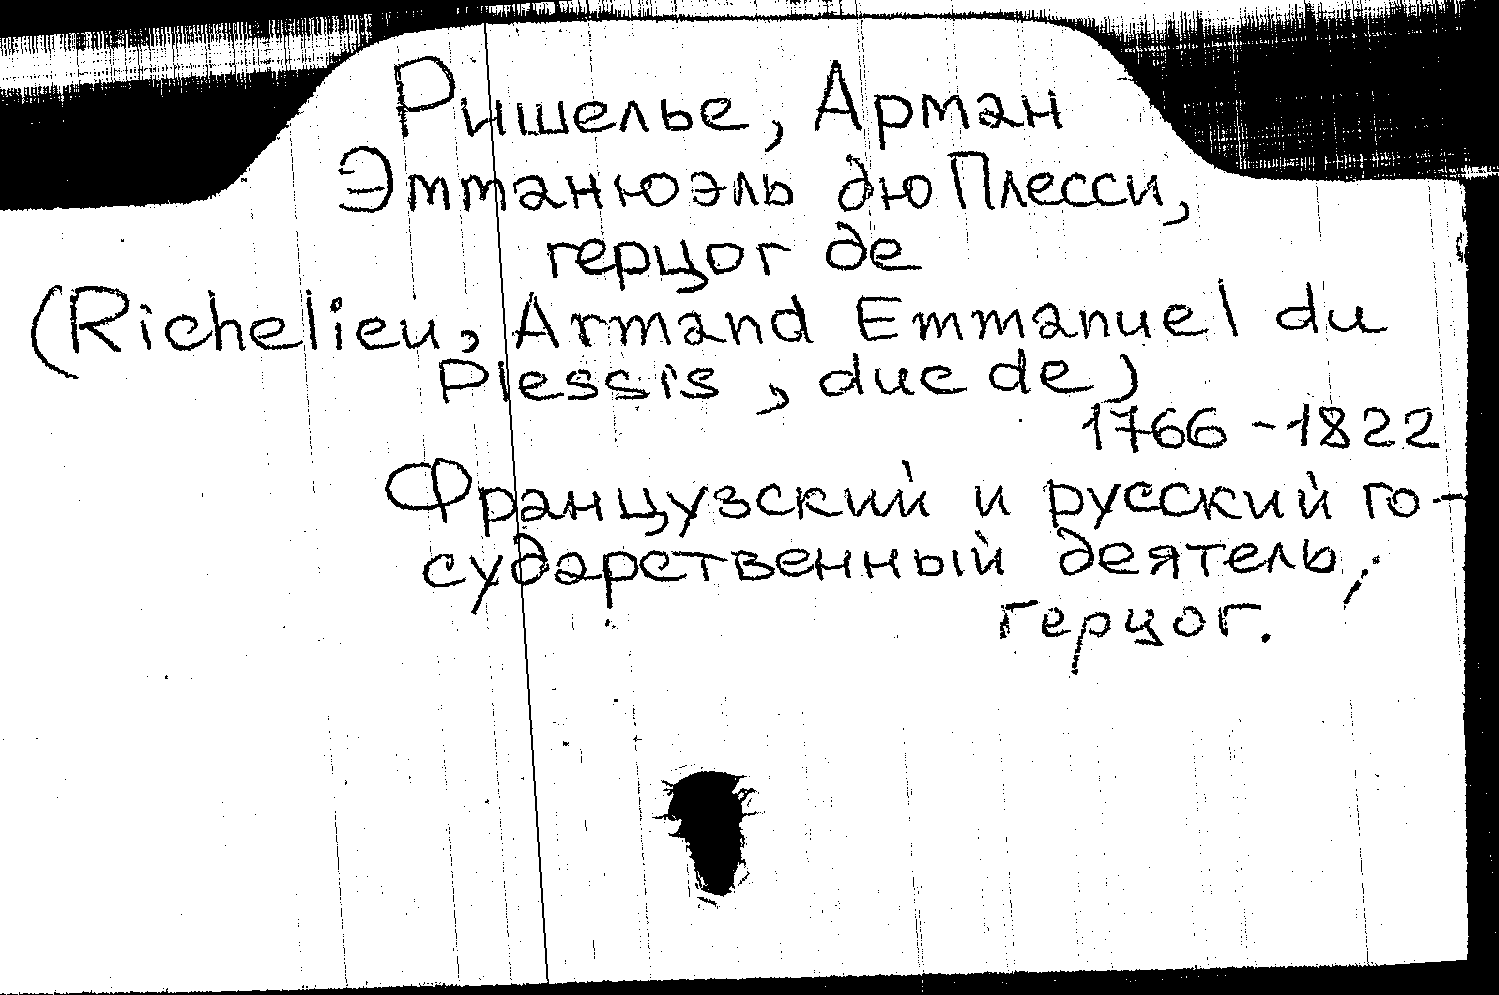 Ришелье, Арман
Эммануэль дю Плесси,
герцог де
(Richelieu, Armand Emmanuel du
Plessis, duc de)
1766-1822
Французский и русский го-
сударственный деятель,
герцог.